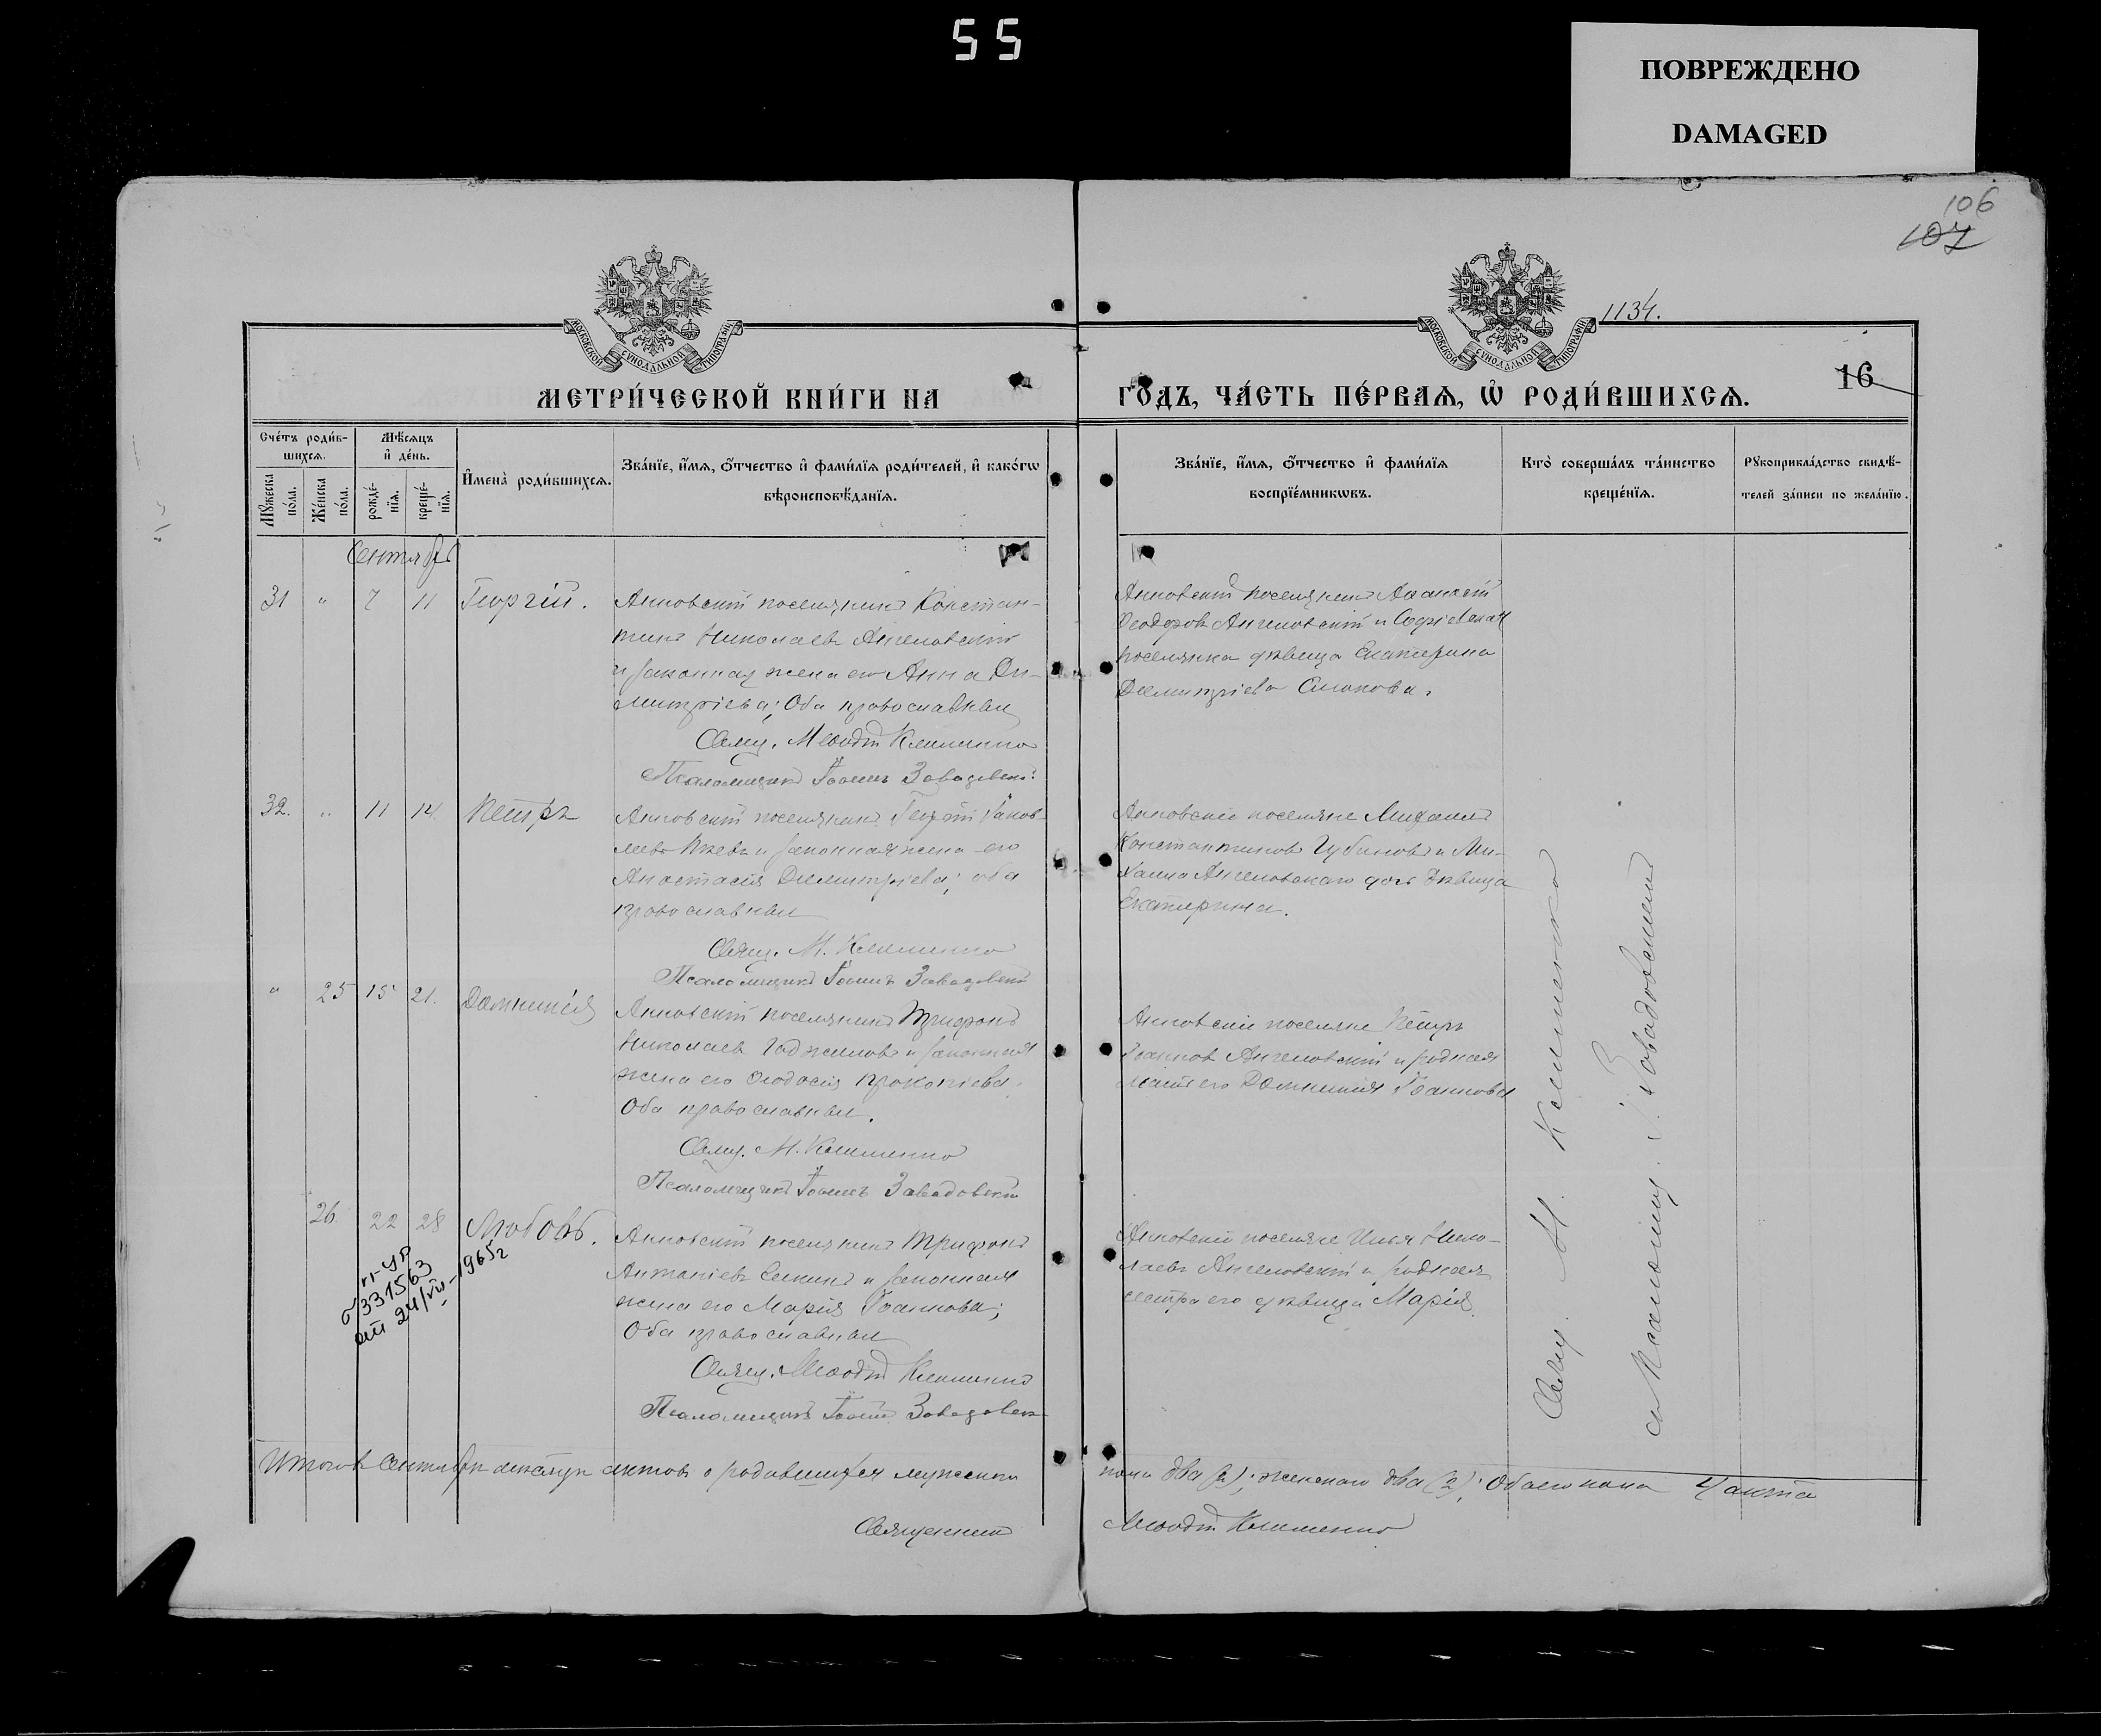 55
ПОВРЕЖДЕНО
DAMAGED
106
107
1134.
16
МОСКОВСКОЙ СѴНОДАЛЬНОЙ ТИПОГРАФІИ
МОСКОВСКОЙ СѴНОДАЛЬНОЙ ТИПОГРАФІИ
МЕТРИ́ЧЕСКОЙ КНИ́ГИ НА
ГО́ДЪ, ЧА́СТЬ ПЕ́РВАѦ, Ѡ҆ РОДИ́ВШИХСѦ.
Сче́тъ роди́в-
шихсѧ.
Мꙋ́жеска по́ла.
Же́нска по́ла.
Мѣ́сѧцъ
и҆ де́нь.
рожде́-
нїѧ.
креще́-
нїѧ.
И҆мена̀ роди́вшихсѧ.
Зва́нїе, и҆́мѧ, ѻ҆́тчество и҆ фами́лїѧ роди́телей, и҆ како́гѡ
вѣроисповѣ́данїѧ.
Зва́нїе, и҆́мѧ, ѻ҆́тчество и҆ фами́лїѧ
воспрїе́мникѡвъ.
Кто̀ соверша́лъ та́инство
креще́нїѧ.
Рꙋкоприкла́дство свидѣ́-
телей за́писи по жела́нїю.
Сентябрь
31 " 7 11 Георгій.
Анновскій поселянинъ Констан-
тинъ Николаевъ Ангеловскій
и законная жена его Анна Ди-
митріева; Оба православные
Свящ. Меѳодій Клименко
Псаломщикъ Іоаннъ Завадовскі
Анновскій поселянинъ Аѳанасій
Ѳеодоровъ Ангеловскій и Софіевская
поселянка дѣвица Екатерина
Димитріева
32. " 11 14. Петръ
Анновскій поселянинъ Георгій Іаков-
левъ и законная жена его
Анастасія Димитріева; оба
православные
Свящ. М. Клименко
Псаломщикъ Іоаннъ Завадовскій
Анновскіе поселяне Михаилъ
Константиновъ Губановъ и Ми-
хаила Ангеловскаго дочь дѣвица
Екатерина.
" 25 15 21. Домникія
Анновскій поселянинъ Трифонъ
Николаевъ и законная
жена его Ѳеодосія Прокопіева.
Оба православные.
Свящ. М. Клименко
Псаломщикъ Іоаннъ Завадовскій
Анновскіе поселяне Петръ
Іоанновъ Ангеловскій и родная
мать его Домникія Іоаннова
26. 22 28 Любовь.
Анновскій поселянинъ Трифонъ
Антоніевъ и законная
жена его Марія Іоаннова;
Оба православные
Свящ. Меѳодій Клименко
Псаломщикъ Іоаннъ Завадовск
Анновскіе поселяне Илья Нико-
лаевъ Ангеловскій и родная
сестра его дѣвица Марія.
331563
от 24/VII-1965г
Свящ. М. Клименко
съ Псаломщ. І. Завадовскимъ
Итого въ Сентябрѣ мѣсяцѣ актовъ о родившихся мужскаго
пола два (2); женскаго два (2); Обоего пола 4 акта
Священникъ
Меѳодій Клименко